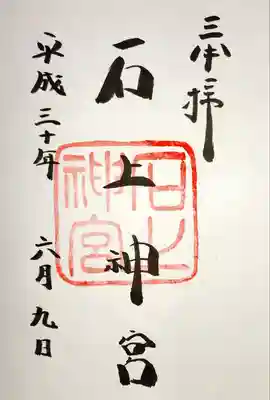 奉拝
石上神宮
石上神宮
平成三十年 六月九日